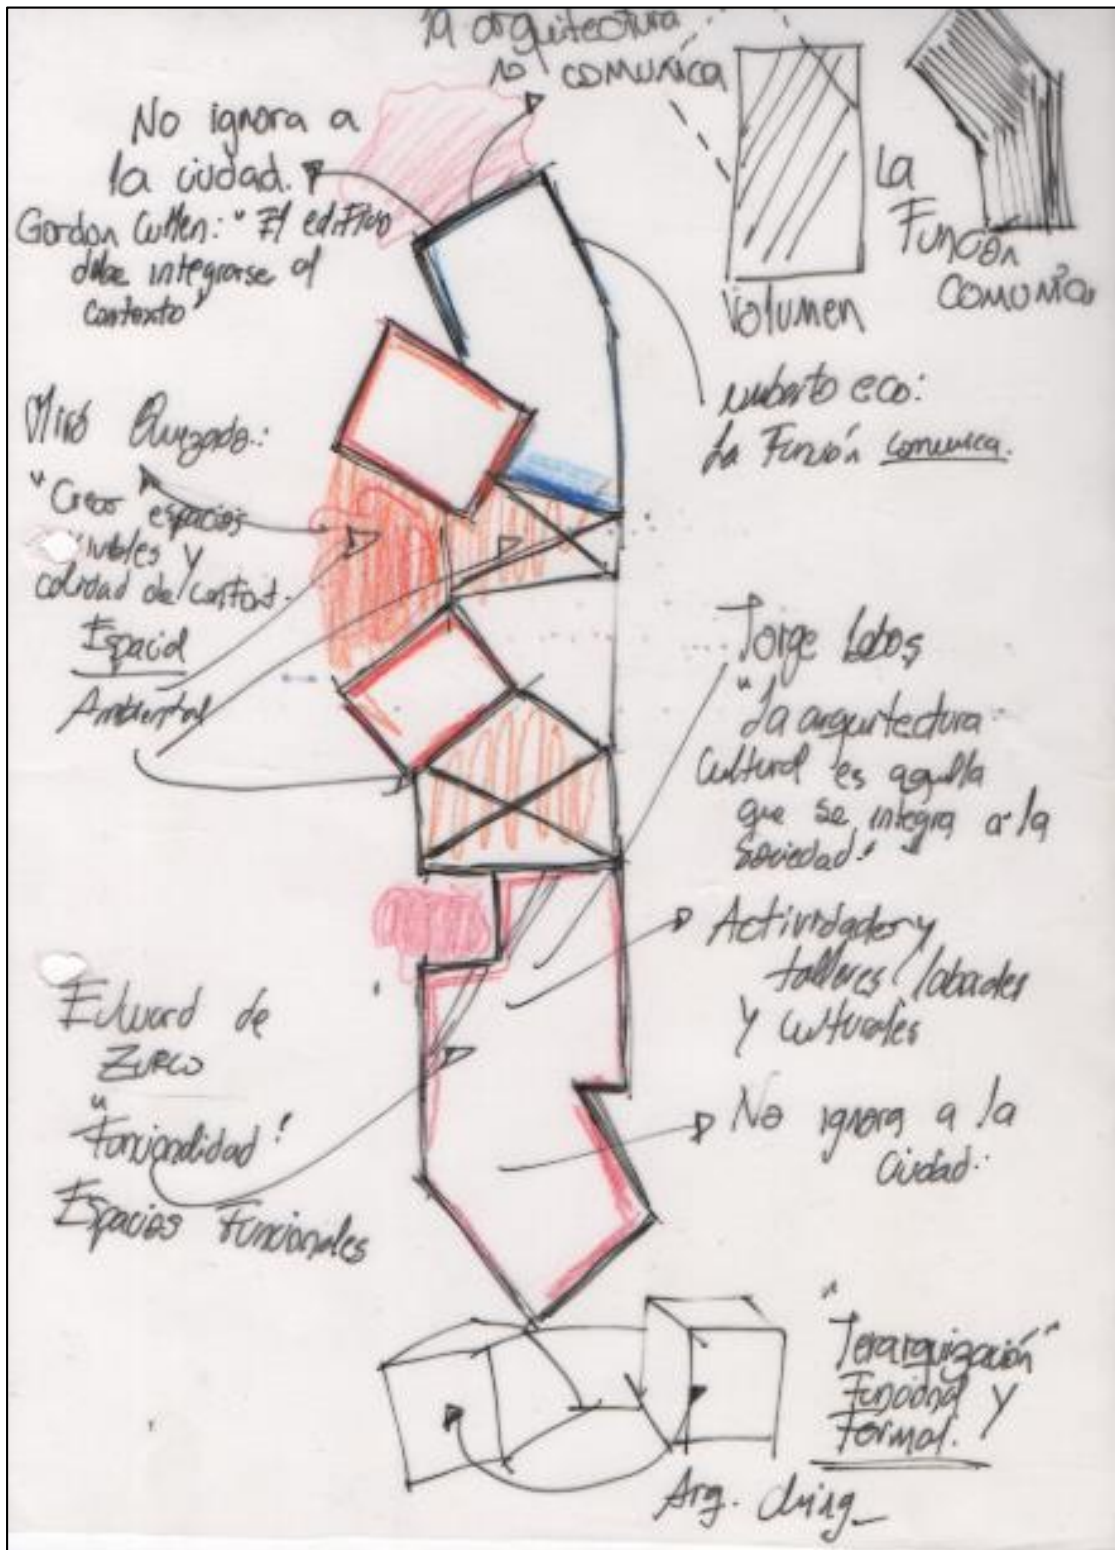 la arquitectura
no comunica
No ignora a
la ciudad.
Gordon Cullen: "El edificio
debe integrarse al
contexto"
Volumen
La
Función
comunica
umberto eco:
La Función comunica.
Miró Quezada:
"Crear espacios
vivibles y
calidad de confort.
Espacial
Ambiental
Jorge Lobos
"La arquitectura
Cultural es aquella
que se integra a la
Sociedad"
Actividades y
talleres
y culturales
Edward de
Zurco
"Funcionalidad"
Espacios Funcionales
No ignora a la
Ciudad.
"Jerarquización"
Funcional y
Formal.
Arq. Ching_